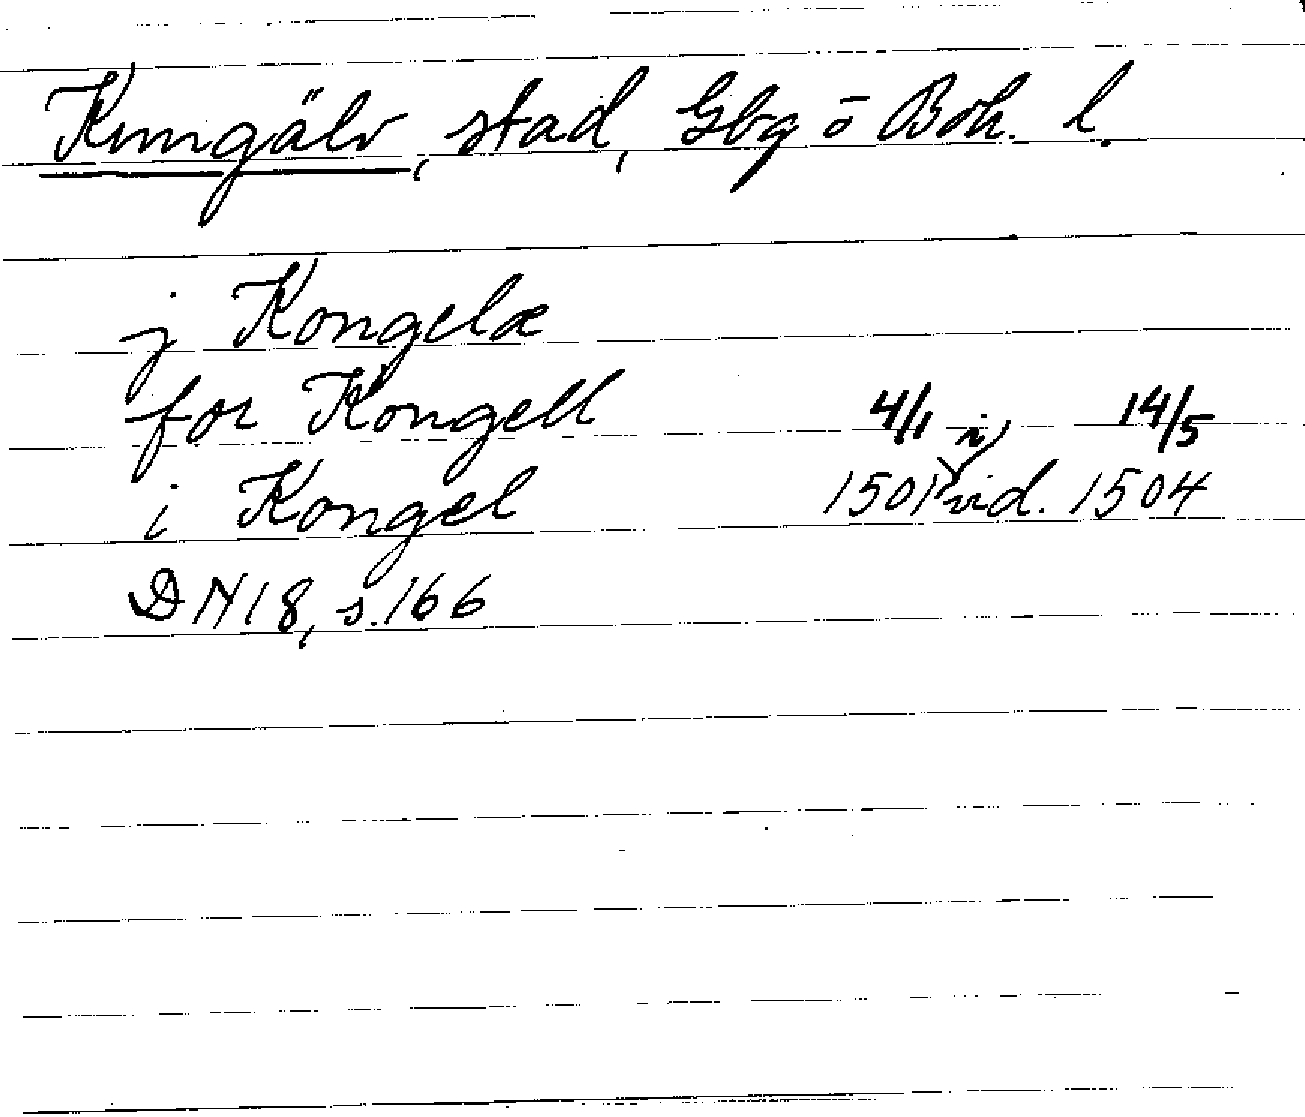 Kungälv, stad, Gbg o Boh. l.
j Kongelæ
for Kongell 4/1 i 14/5
i Kongel 1501 vid. 1504
DN 18, s. 166